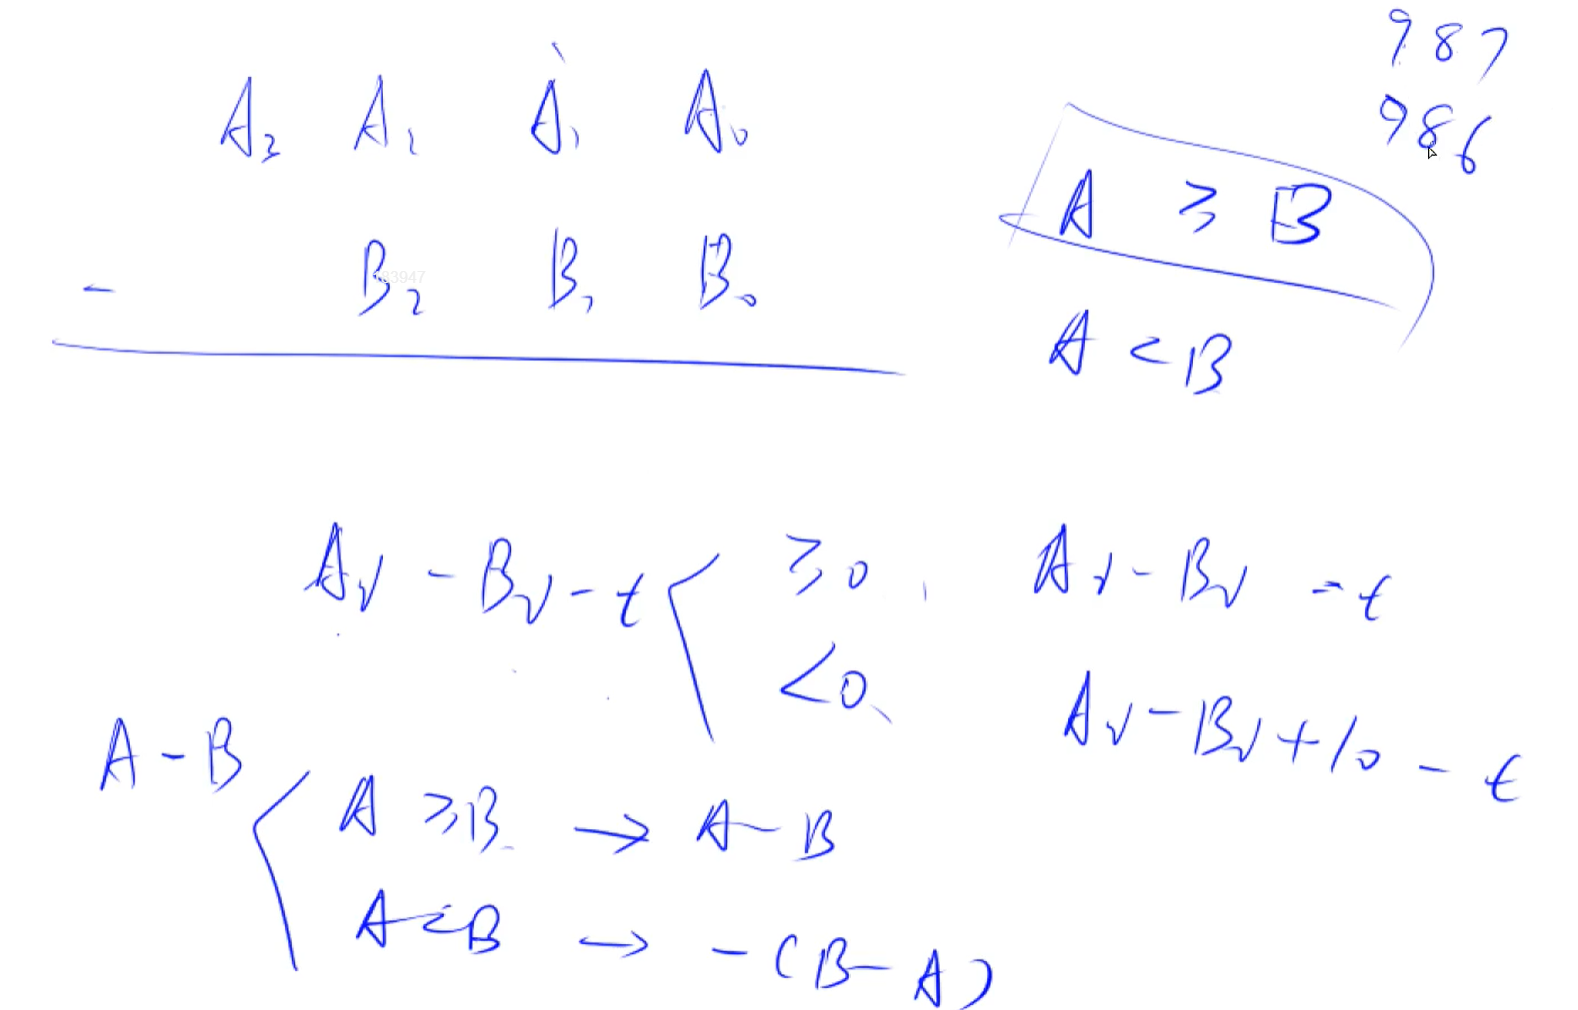 A₃ A₂ A₁ A₀
- B₂ B₁ B₀
987
986
A ≥ B
A < B
Aᵢ - Bᵢ - t
≥0, Aᵢ - Bᵢ - t
<0, Aᵢ - Bᵢ + 10 - t
A - B
A ≥ B → A - B
A < B → -(B - A)